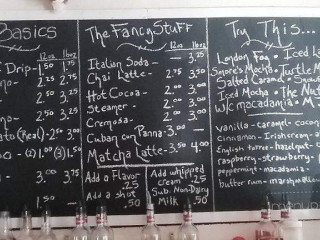 Basics
12oz 16oz
Drip - 1.50 1.75
2.25 2.75
2.50 3.25
2.50 3.25
(Real) - 2.50 3.00
- (2) 1.00 (3) 1.50
3.00 3.75
1.50
The Fancy Stuff
12oz 16oz
Italian Soda - — 3.25
Chai Latte - 2.75 3.50
Hot Cocoa - 2.00 3.00
Steamer - 2.00 3.00
Cremosa - 2.00 3.00
Cuban con Panna - 3.00 —
Matcha Latte - 3.50 4.00
Add a Flavor
.25
Add a shot
.50
Add whipped
cream .25
Sub. Non-Dairy
Milk .50
Try This...
London Fog • Iced
Smore's Mocha • Turtle M
Salted Caramel •
Iced Mocha • The Nut
w/c macadamia • M
vanilla - caramel - coco
cinnamon - Irish cream - a
English toffee - hazelnut - c
raspberry - strawberry -
peppermint - macadamia -
butter rum - marshmall